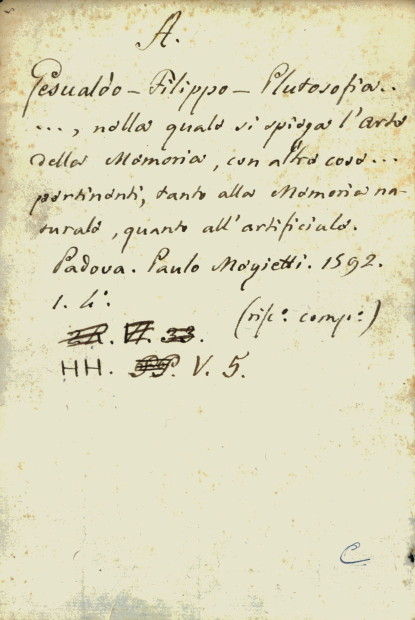 A.
Gesualdo - Filippo - Plutosofia..
..., nella quale si spiega l'arte
della Memoria, con altre cose...
pertinenti, tanto alla Memoria na-
turale, quanto all'artificiale.
Padova. Paulo Megietti. 1592.
1. 4°.
(rif.° comp.°)
VI. 33.
HH. V. 5.
C